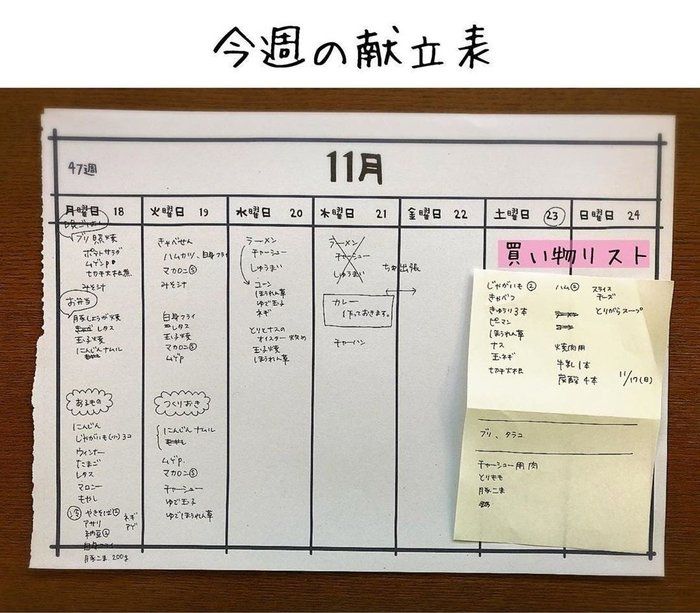 今週の献立表
47週
11月
月曜日 18
火曜日 19
水曜日 20
木曜日 21
金曜日 22
土曜日 23
日曜日 24
ブリ照焼
ポテトサラダ
ムゲンP
切り干大根煮
みそ汁
お弁当
豚しょうが焼
レタス
玉子焼
にんじんナムル
あるもの
にんじん
じゃがいも(小)3コ
ウィンナー
たまご
レタス
マロニー
もやし
冷
やきそば
アサリ
納豆
白身フライ
豚こま 200g
ネギ
アゲ
きゃべせん
ハムカツ、白身フライ
マカロニS
みそ汁
白身フライ
レタス
玉子焼
マカロニS
ムゲP
つくりおき
にんじんナムル
ムゲP.
マカロニS
チャーシュー
ゆで玉子
ゆでほうれん草
ラーメン
チャーシュー
しゅうまい
コーン
ほうれん草
ゆで玉子
ネギ
とりとナスの
オイスター炒め
玉子焼
ほうれん草
ラーメン
チャーシュー
しゅうまい
カレー
作っておきます。
チャーハン
出張
買い物リスト
じゃがいも
きゃべつ
きゅうり3本
ピーマン
ほうれん草
ナス
玉ネギ
切干大根
ハム
焼肉用
牛乳1本
炭酸4本
スライス
チーズ
とりがらスープ
11/17(日)
ブリ、タラコ
チャーシュー用肉
とりもも
豚こま